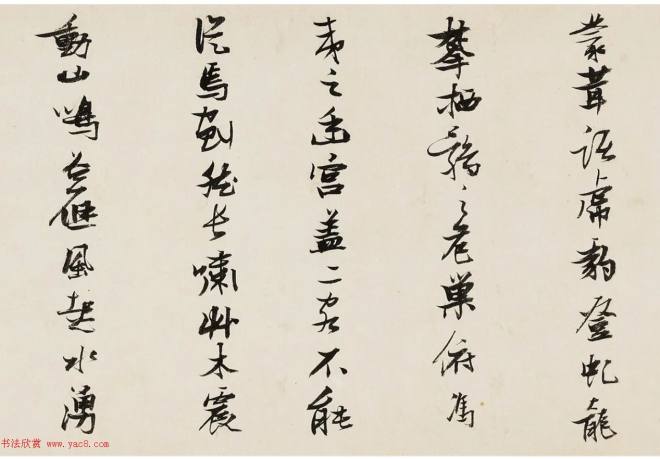 蒙茸踞虎豹登虬龍
攀栖鶻之危巢俯馮
夷之幽宮蓋二客不能
從焉劃然長嘯艸木震
動山鳴谷應風起水湧
书法欣赏 www.yac8.com